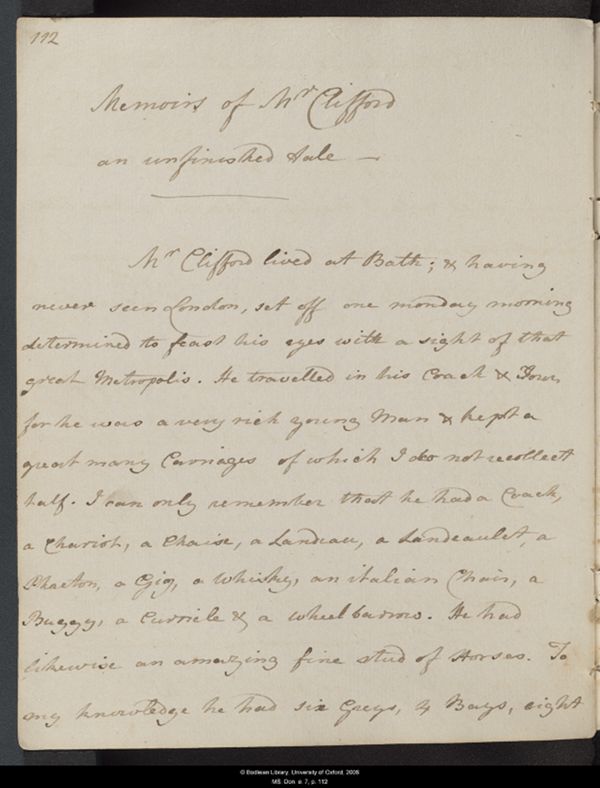 112
Memoirs of Mr Clifford
an unfinished tale —
Mr Clifford lived at Bath; & having
never seen London, set off one monday morning
determined to feast his eyes with a sight of that
great Metropolis. He travelled in his Coach & Four,
for he was a very rich young Man & kept a
great many Carriages of which I do not recollect
half. I can only remember that he had a Coach,
a Chariot, a Chaise, a Landeau, a Landeaulet, a
Phaeton, a Gig, a Whisky, an italian Chair, a
Buggy, a Curricle & a wheelbarrow. He had
likewise an amazing fine stud of Horses. To
my knowledge he had six Greys, 4 Bays, eight
© Bodleian Library, University of Oxford, 2006
MS. Don. e. 7, p. 112